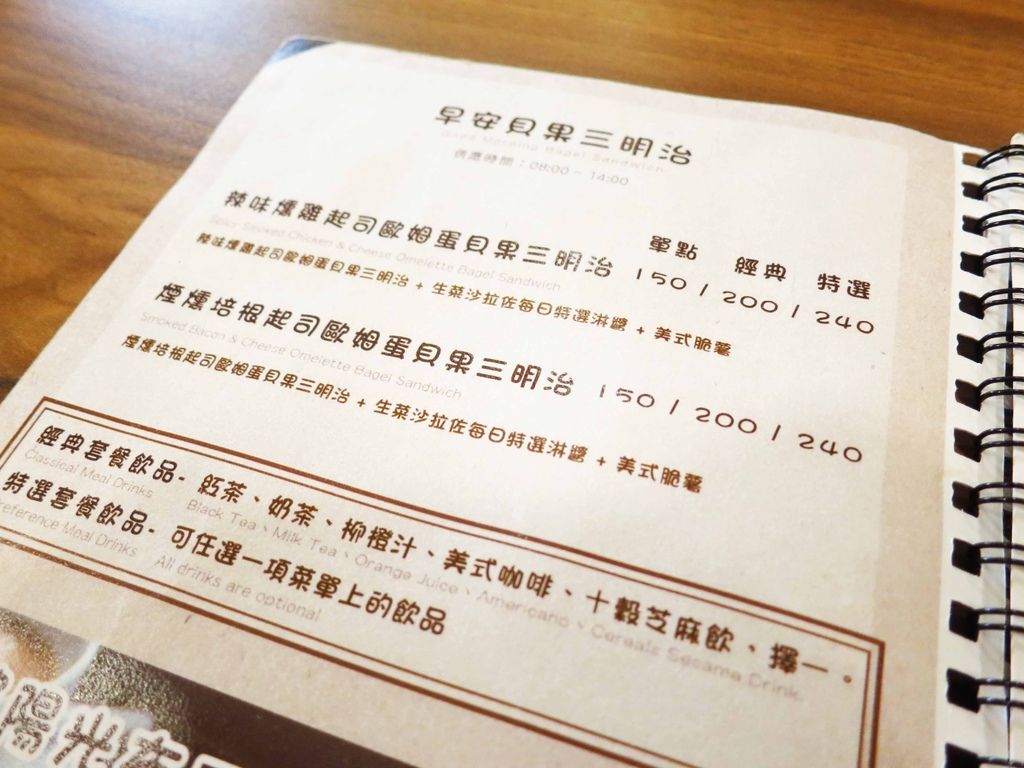 早安貝果三明治
Good Morning Bagel Sandwich
供應時間：08:00 - 14:00
單點 經典 特選
辣味燻雞起司歐姆蛋貝果三明治 150 / 200 / 240
Spicy Smoked Chicken & Cheese Omelette Bagel Sandwich
辣味燻雞起司歐姆蛋貝果三明治 + 生菜沙拉佐每日特選淋醬 + 美式脆薯
煙燻培根起司歐姆蛋貝果三明治 150 / 200 / 240
Smoked Bacon & Cheese Omelette Bagel Sandwich
煙燻培根起司歐姆蛋貝果三明治 + 生菜沙拉佐每日特選淋醬 + 美式脆薯
經典套餐飲品- 紅茶、奶茶、柳橙汁、美式咖啡、十穀芝麻飲、擇一。
Classical Meal Drinks Black Tea、Milk Tea、Orange Juice、Americano、Cereals Sesame Drink
特選套餐飲品- 可任選一項菜單上的飲品
reference Meal Drinks All drinks are optional
陽光